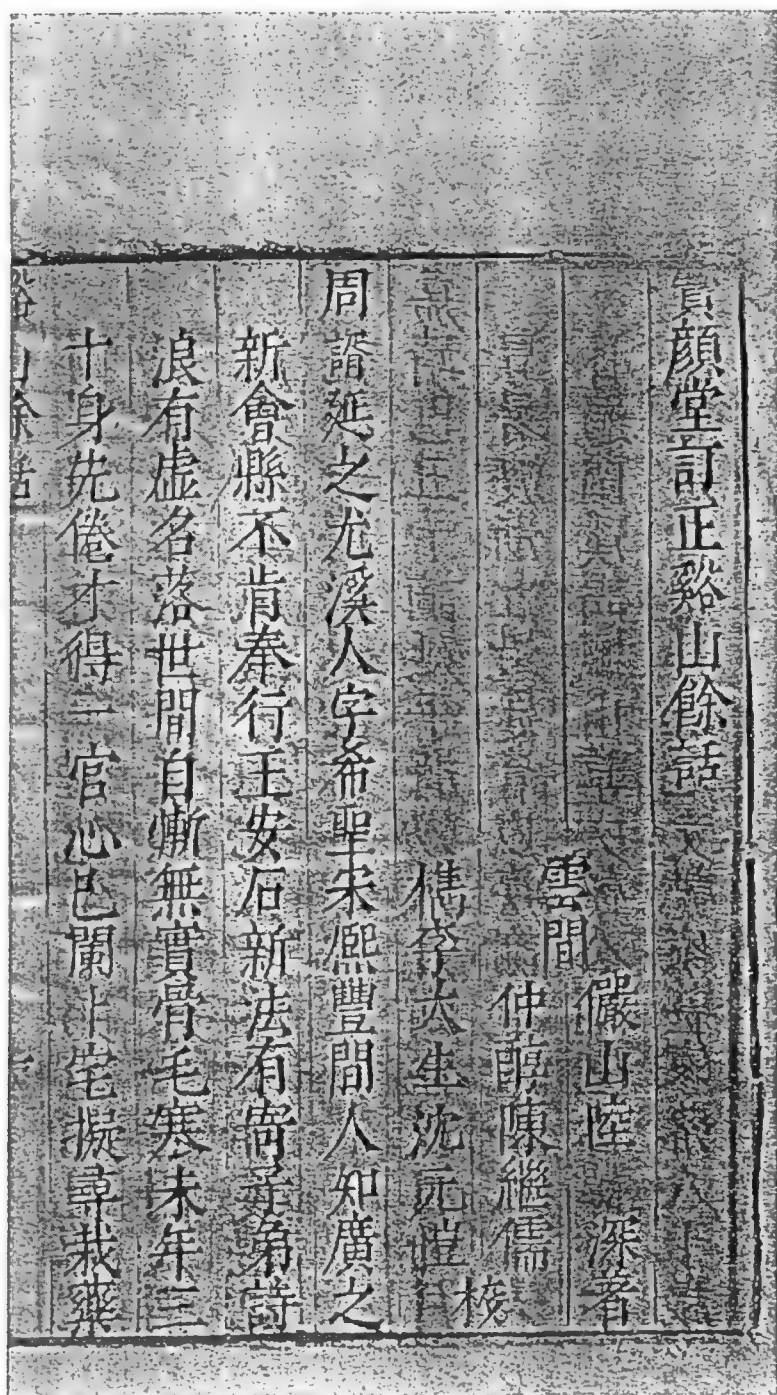 眞顔堂訂正谿山餘話
雲間 儼山陸 深著
仲醇陳繼儒
檇李大生沈元愷 校
周諝延之尤溪人字希聖宋熙豐間人知廣之
新會縣不肯奉行王安石新法有寄子弟詩
浪有虛名落世間自慚無實骨毛寒未年三
十身先倦才得一官心已闌卜宅擬尋栽藥
谿山餘話